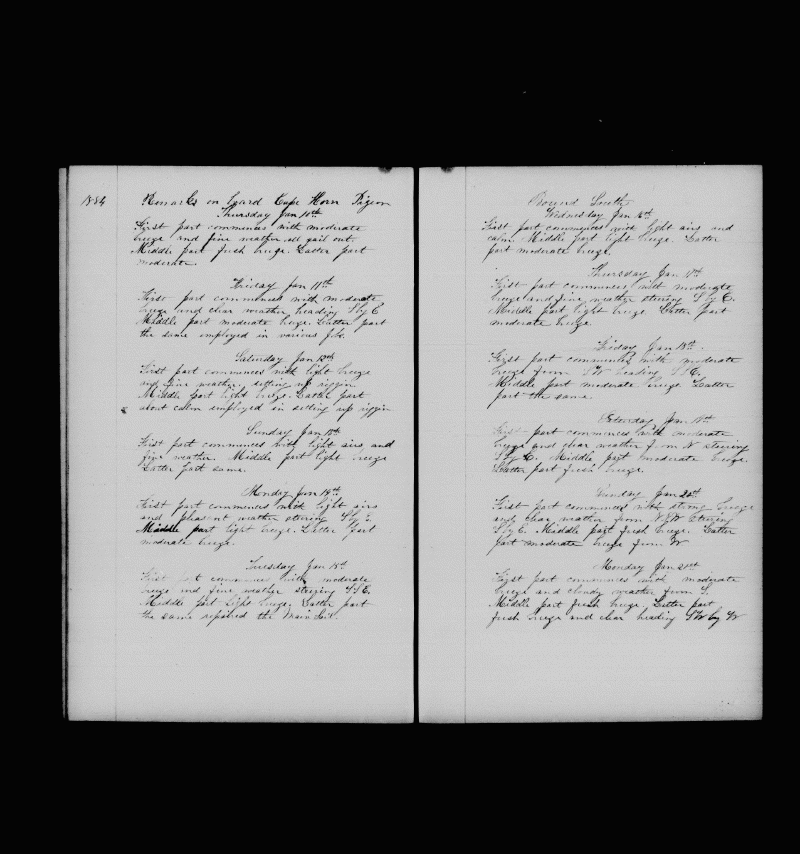 1884
Remarks on board Cape Horn Pigeon
Thursday Jan 10th
First part commences with moderate
breeze and fine weather all sail out.
Middle part fresh breeze. Latter part
moderate.
Friday Jan 11th
First part commences with moderate
breeze and clear weather heading S by E
Middle part moderate breeze. Latter part
the same employed in various
Saturday Jan 12th
First part commences with light breeze
and fine weather, setting up riggin
Middle part light breeze. Latter part
about calm employed in setting up riggin
Sunday Jan 13th
First part commences with light airs and
fine weather. Middle part light breeze
Latter part same.
Monday Jan 14th
First part commences with light airs
and pleasent weather steering S by E.
Middle part light breeze. Latter part
moderate breeze.
Tuesday Jan 15th
First part commences with moderate
breeze and fine weather steering SSE.
Middle part light breeze. Latter part
the same repaired the main sail.
Bound South
Wednesday Jan 16th
First part commences with light airs and
calm. Middle part light breeze. Latter
part moderate breeze.
Thursday Jan 17th
First part commences with moderate
breeze and fine weather steering S by E.
Middle part light breeze. Latter part
moderate breeze.
Friday Jan 18th.
First part commences with moderate
breeze from SW heading S.E.
Middle part moderate breeze Latter
part the same.
Saturday Jan 19th
First part commences with moderate
breeze and clear weather from N steering
S by E. Middle part moderate breeze.
Latter part fresh breeze.
Sunday Jan 20th
First part commences with strong breeze
and clear weather from NNW Steering
S by E. Middle part fresh breeze. Latter
part moderate breeze from W
Monday Jan 21st
First part commences with moderate
breeze and cloudy weather from S.
Middle part fresh breeze. Latter part
fresh breeze and clear heading SW by W